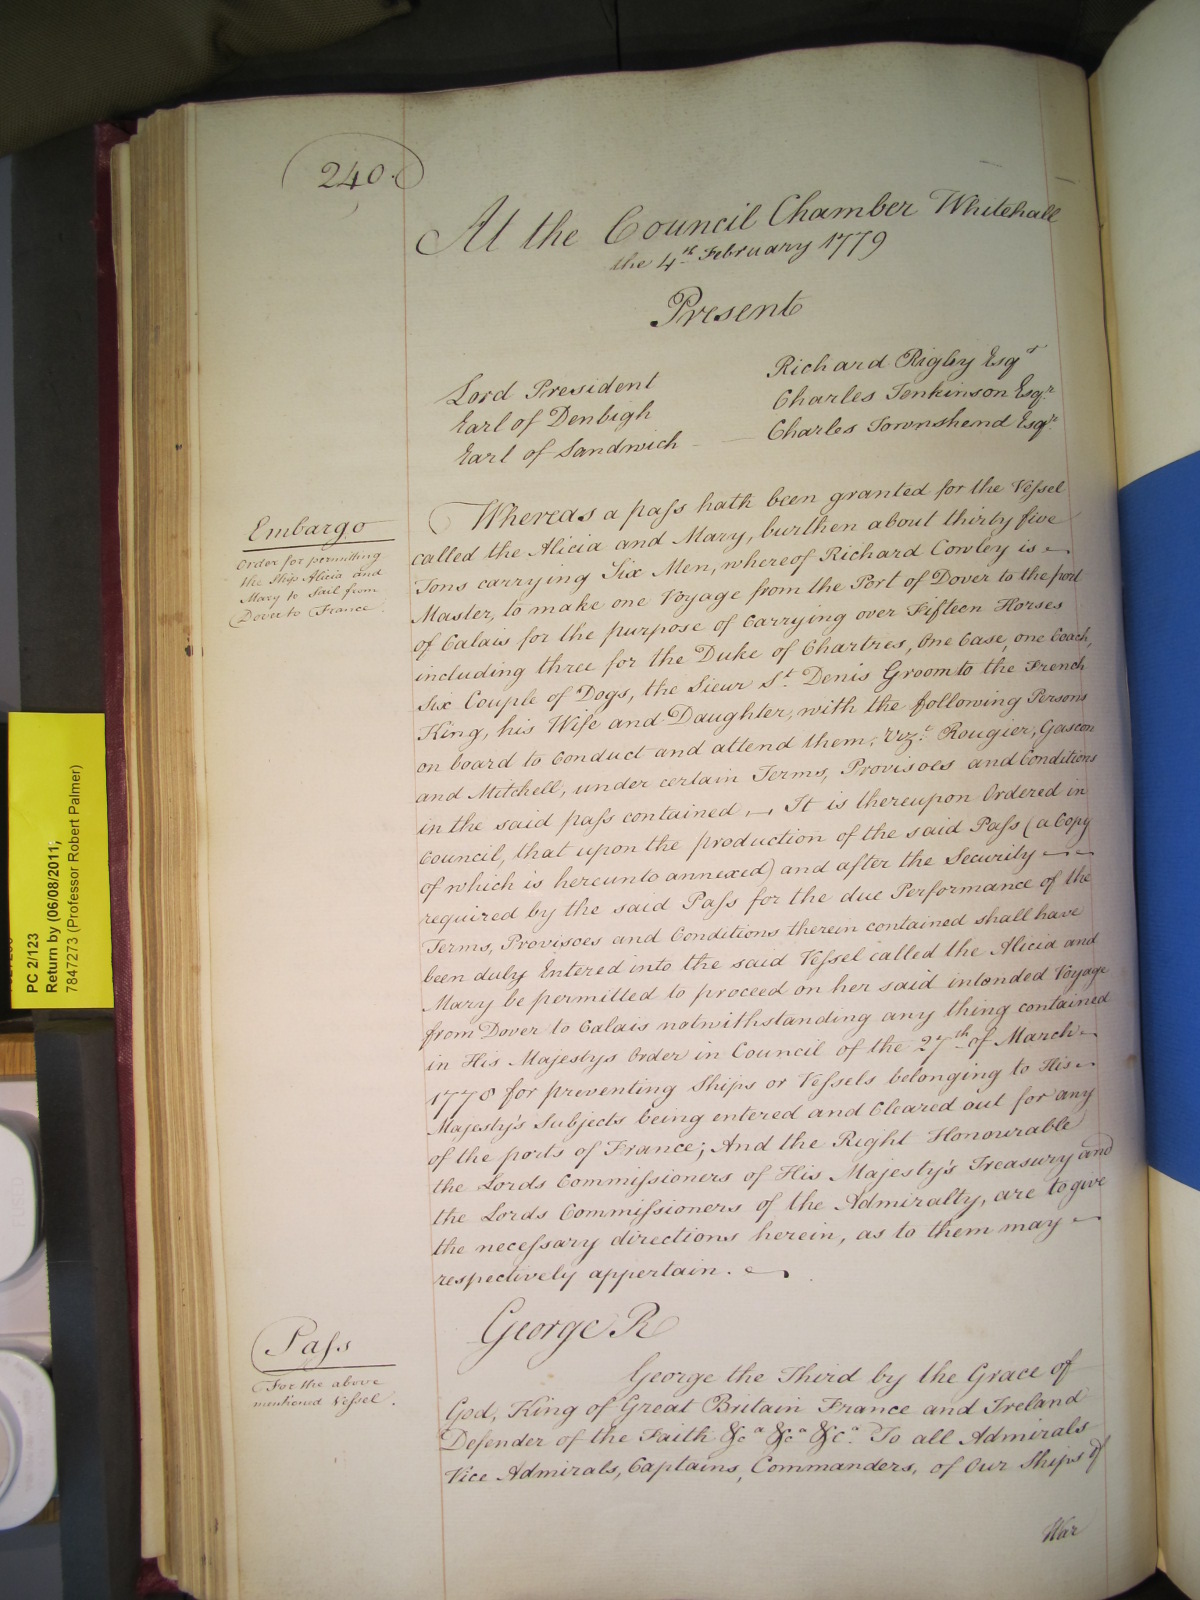 240.
At the Council Chamber Whitehall
the 4th February 1779
Present
Lord President
Earl of Denbigh
Earl of Sandwich
Richard Rigby Esqr
Charles Jenkinson Esqr
Charles Townshend Esqr
Embargo
Order for permitting
the Ship Alicia and
Mary to Sail from
Dover to France.
Whereas a pass hath been granted for the Vessel
called the Alicia and Mary, burthen about thirty five
Tons carrying Six Men, whereof Richard Cowley is
Master, to make one Voyage from the Port of Dover to the port
of Calais for the purpose of Carrying over Fifteen Horses
including three for the Duke of Chartres, One Case, one Coach,
Six Couple of Dogs, the Sieur St. Denis Groom to the French
King, his Wife and Daughter, with the following Persons
on board to Conduct and attend them, Vizt. Rougier, Gascon
and Mitchell, under certain Terms, Provisoes and Conditions
in the said pass contained, It is thereupon Ordered in
Council, that upon the production of the said Pass (a Copy
of which is hereunto annexed) and after the Security
required by the said Pass for the due Performance of the
Terms, Provisoes and Conditions therein contained shall have
been duly Entered into the said Vessel called the Alicia and
Mary be permitted to proceed on her said intended Voyage
from Dover to Calais notwithstanding any thing contained
in His Majestys Order in Council of the 27th of March
1778 for preventing Ships or Vessels belonging to His
Majesty's Subjects being entered and Cleared out for any
of the ports of France; And the Right Honourable
the Lords Commissioners of His Majesty's Treasury and
the Lords Commissioners of the Admiralty, are to give
the necessary directions herein, as to them may
respectively appertain.
George R
Pass
For the above
mentioned Vessel.
George the Third by the Grace of
God, King of Great Britain France and Ireland
Defender of the Faith &ca &ca &ca. To all Admirals
Vice Admirals, Captains, Commanders, of Our Ships of
War
PC 2/123
Return by (06/08/2011;
7847273 (Professor Robert Palmer)